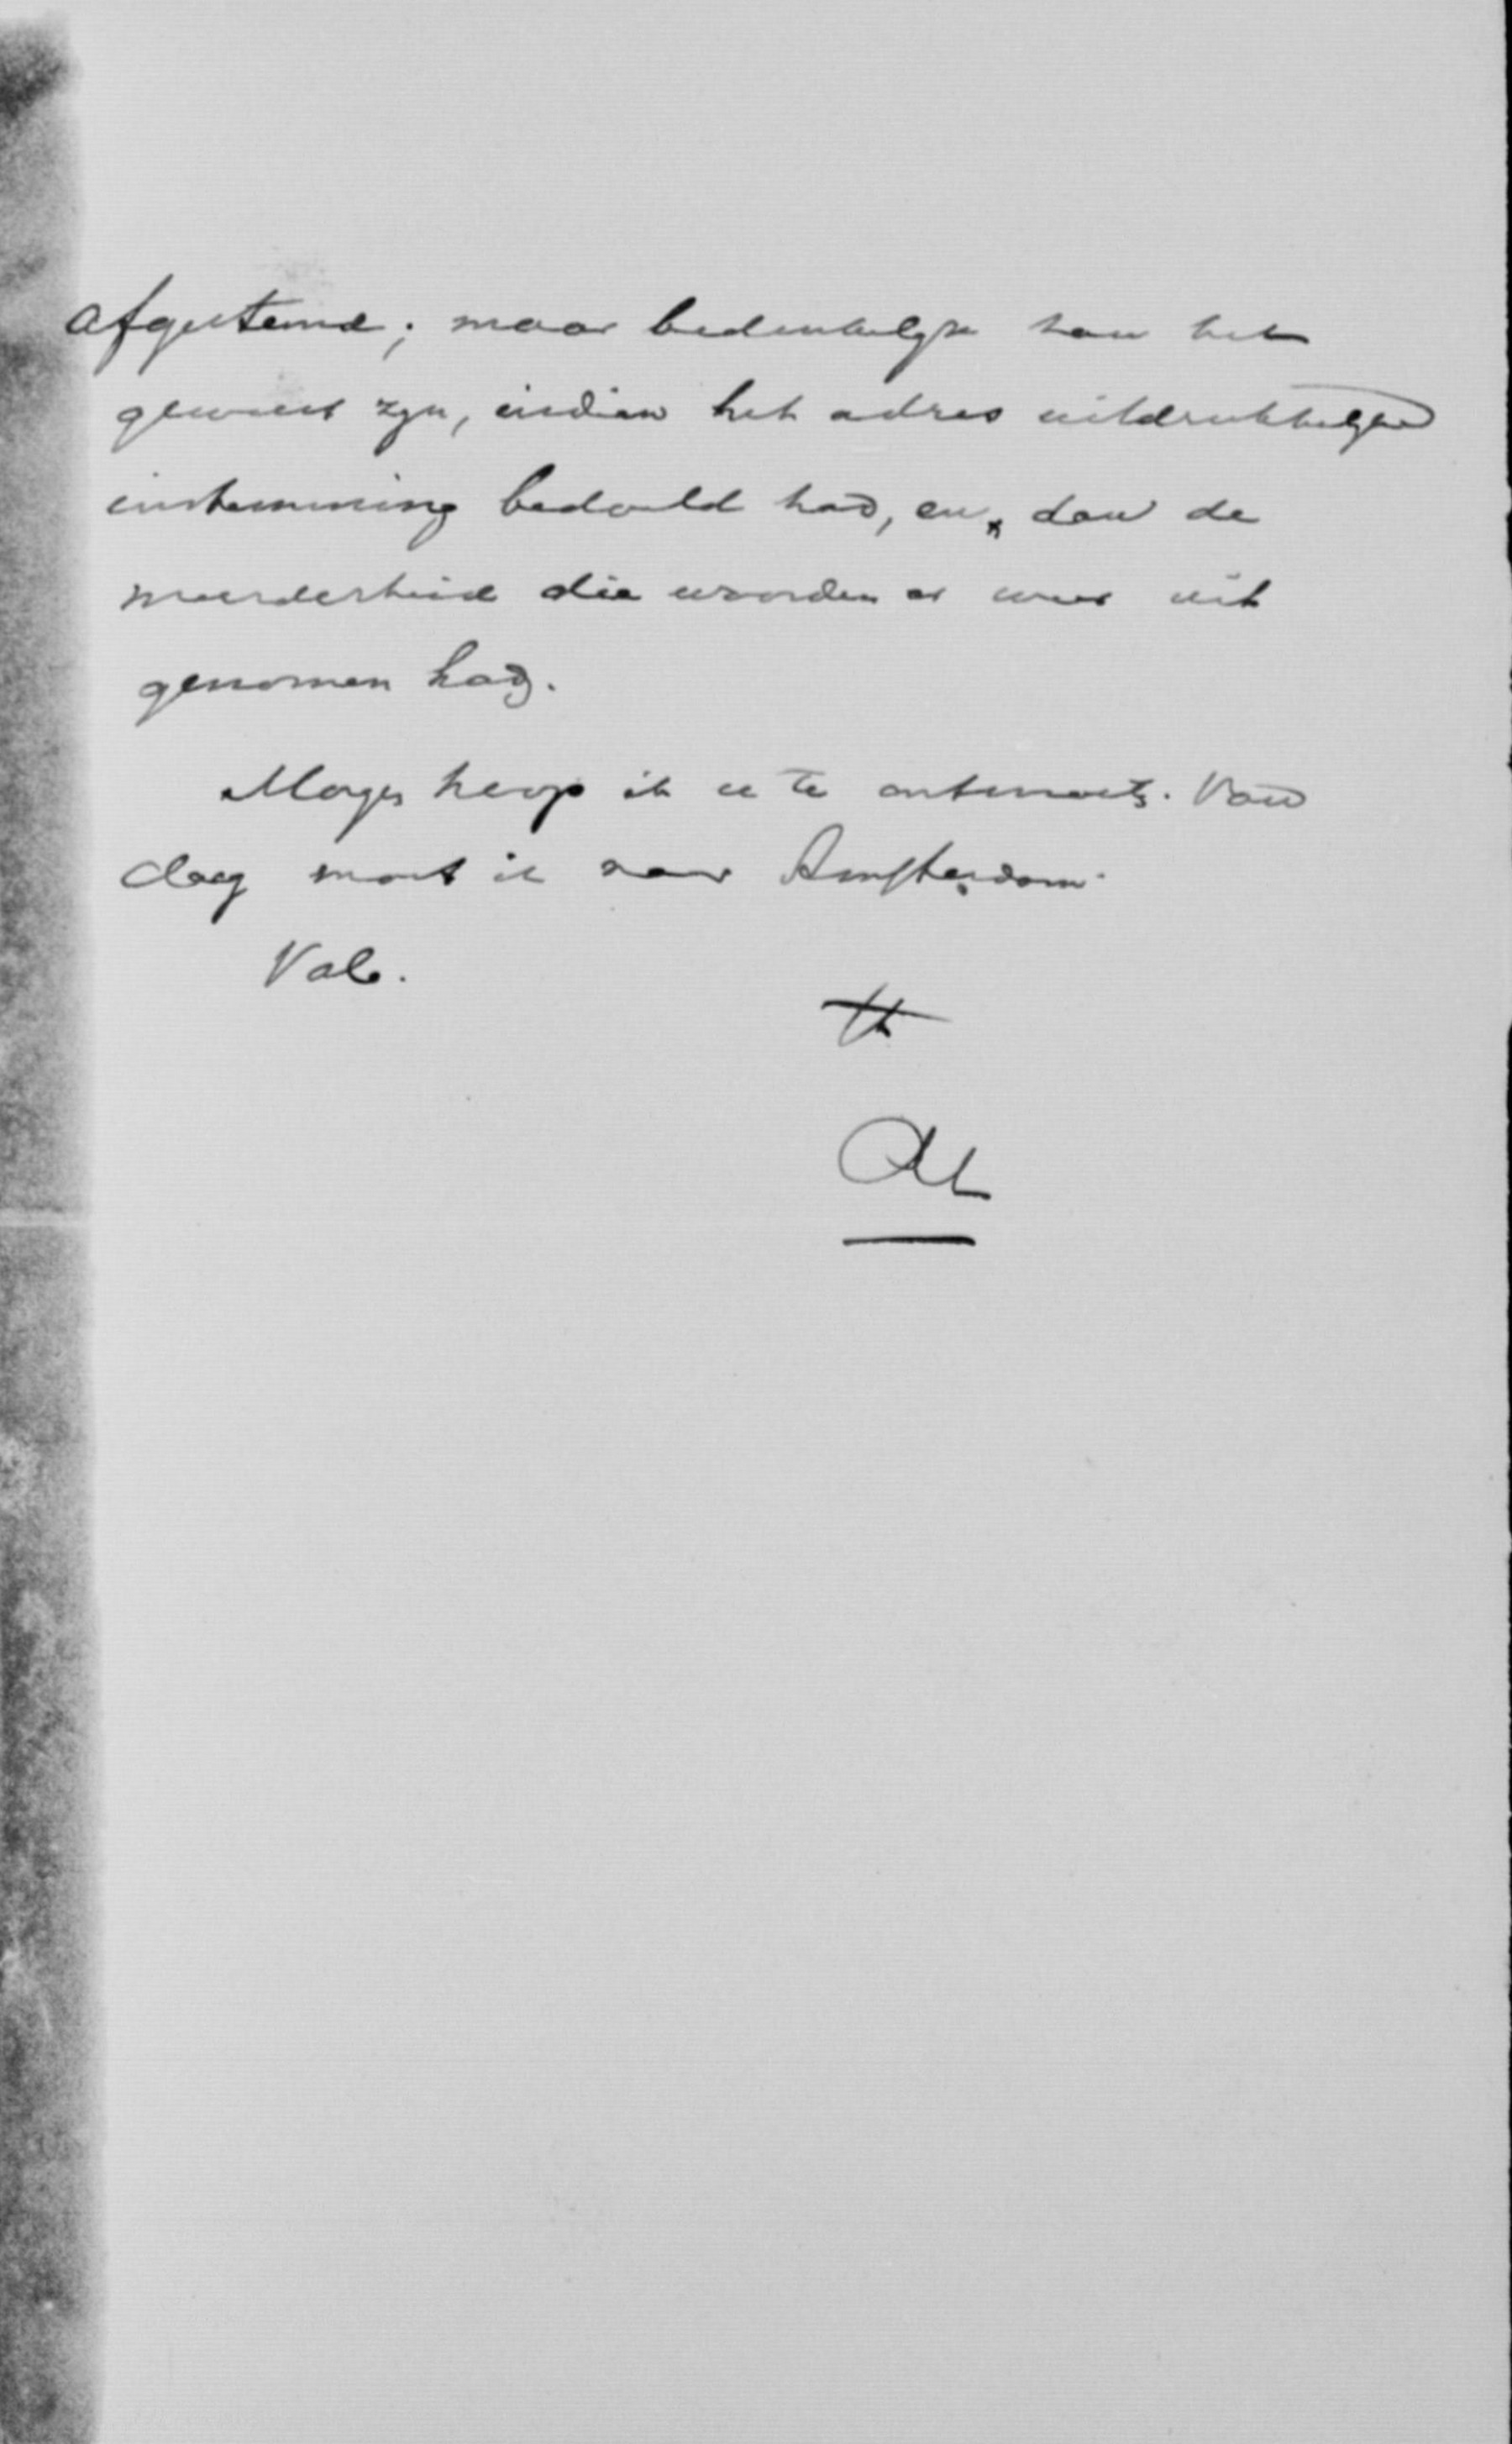 afgestemd; maar bedenkelijk kon het
geweest zijn, indien het adres uitdrukkelijke
instemming bedoeld had, en dan de
meerderheid die woorden er weer uit
genomen had.
Morgen hoop ik u te ontmoeten. Van
daag moet ik naar Amsterdam.
Vale.
tt